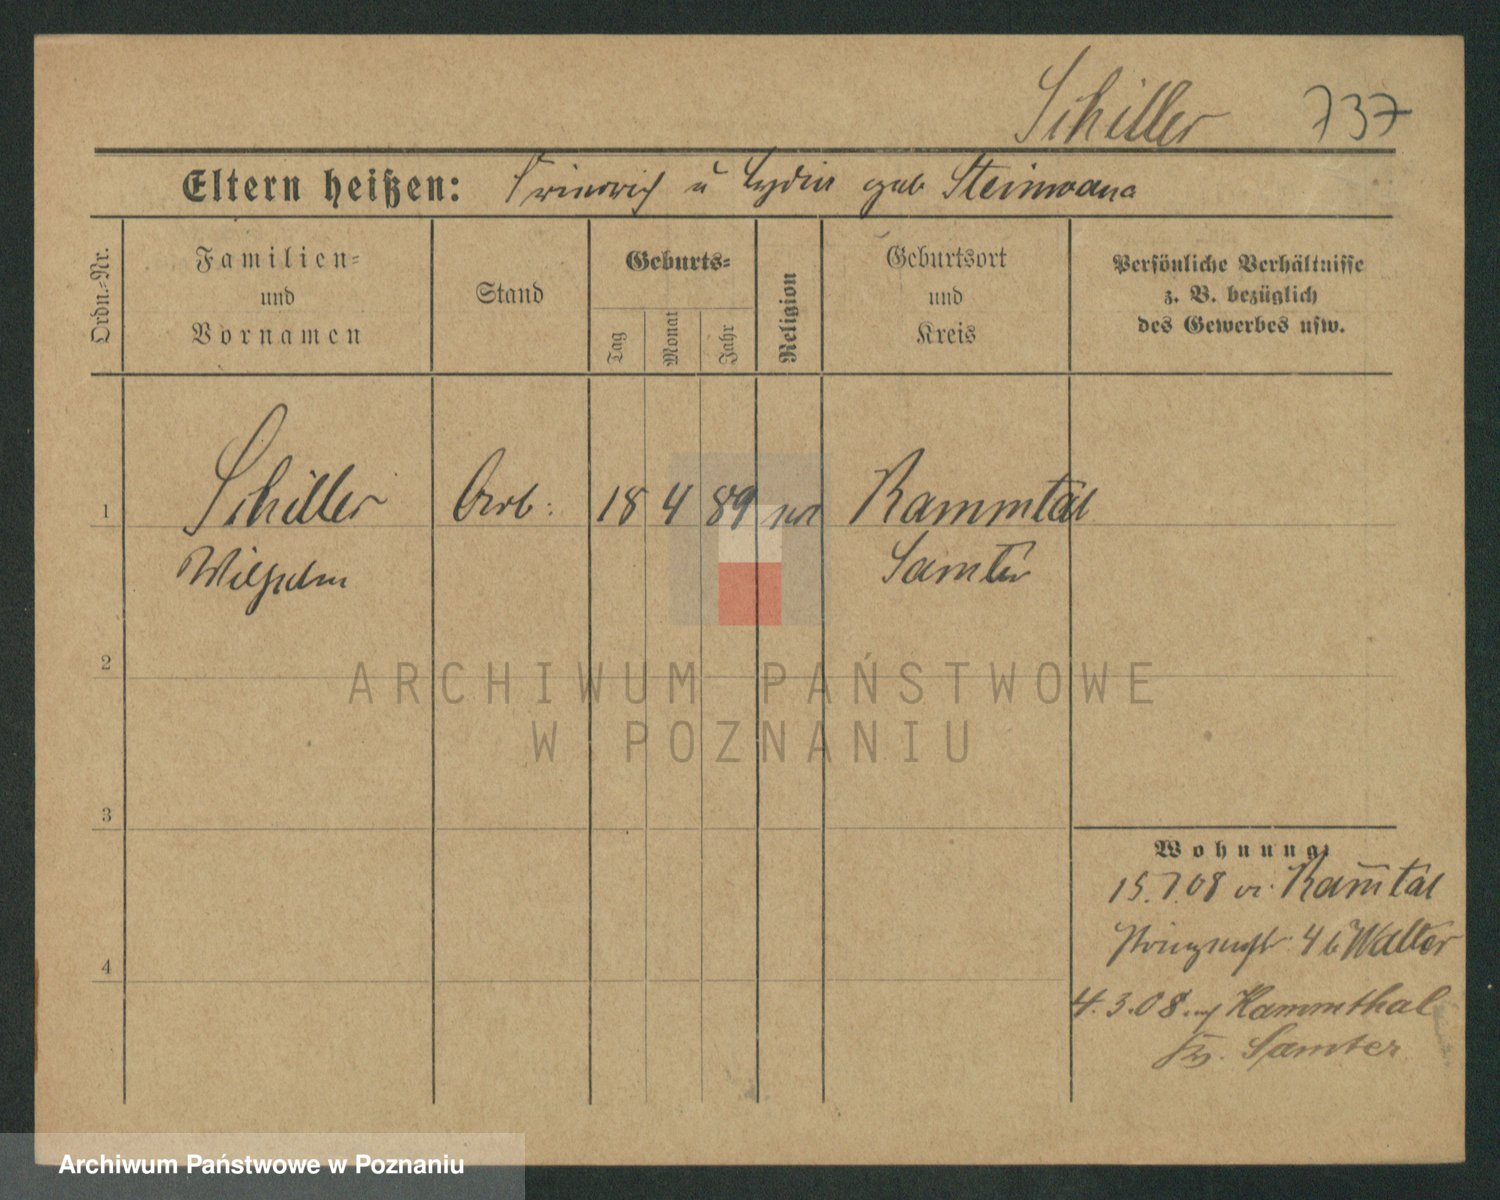 Schiller 737
Eltern heißen: Friedrich u Lydia geb
Ordn.-Nr.
Familien-
und
Vornamen
Stand
Geburts-
Tag
Monat
Jahr
Religion
Geburtsort
und
Kreis
Persönliche Verhältnisse
z. B. bezüglich
des Gewerbes usw.
1 Schiller Arb: 18 4 89 ev Kammtal
Wilhelm Samter
2
ARCHIWUM PAŃSTWOWE
W POZNANIU
3
Wohnung:
15.1.08 v. Kam̅tal
4 b Walter
4
4.3.08 Kammthal
Kr. Samter
Archiwum Państwowe w Poznaniu